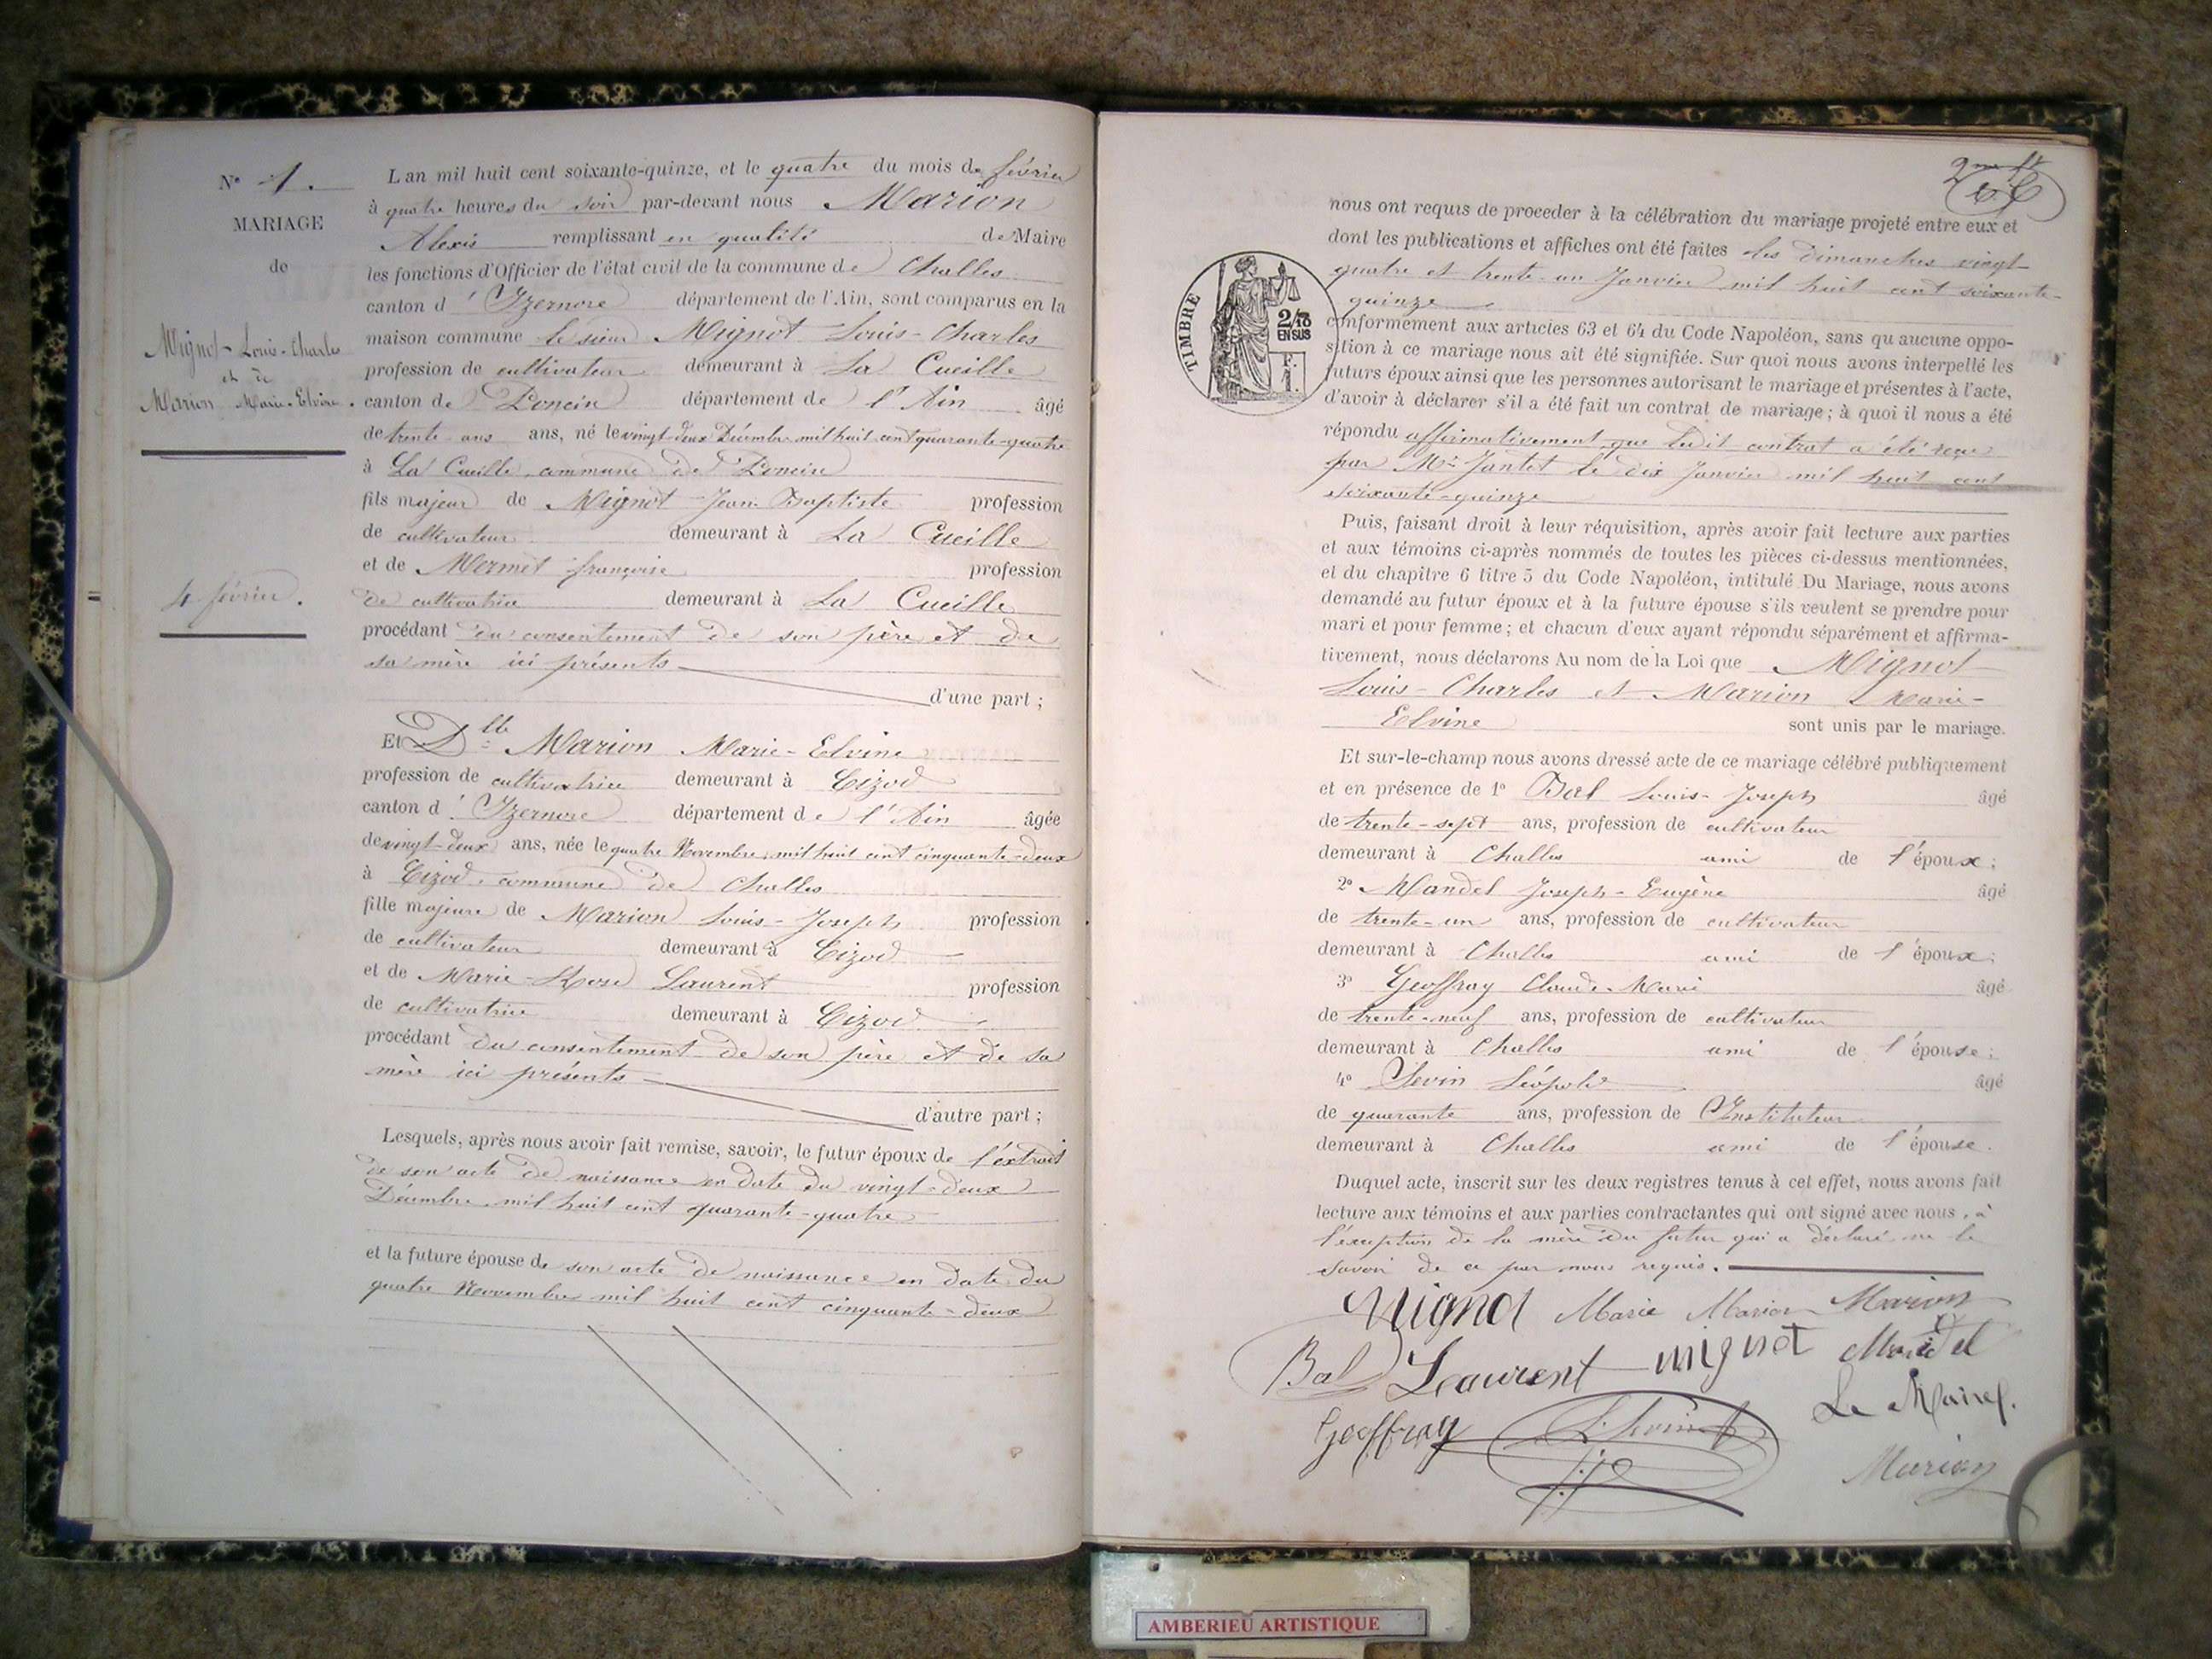 N° 1.
MARIAGE
de
Mignot Louis-Charles
et de
Marion Marie-Elvine.
4 février.
L an mil huit cent soixante-quinze, et le quatre du mois de février
à quatre heures du soir par-devant nous Marion
Alexis remplissant en qualité de Maire
les fonctions d'Officier de l'état civil de la commune de Challes
canton d' Izernore département de l'Ain, sont comparus en la
maison commune le sieur Mignot Louis-Charles
profession de cultivateur demeurant à La Cueille
canton de Poncin département de l'Ain âgé
de trente ans ans, né le vingt-deux Décembre mil huit cent quarante-quatre
à La Cueille, commune de Poncin
fils majeur de Mignot Jean-Baptiste profession
de cultivateur demeurant à La Cueille
et de Mermet françoise profession
de cultivatrice demeurant à La Cueille
procédant du consentement de son père et de
sa mère ici présents
d'une part ;
Et Dlle Marion Marie-Elvine
profession de cultivatrice demeurant à Cizod
canton d' Izernore département de l'Ain âgée
de vingt-deux ans, née le quatre Novembre mil huit cent cinquante-deux
à Cizod, commune de Challes
fille majeure de Marion Louis-Joseph profession
de cultivateur demeurant à Cizod
et de Marie-Rose Laurent profession
de cultivatrice demeurant à Cizod
procédant du consentement de son père et de sa
mère ici présents
d'autre part ;
Lesquels, après nous avoir fait remise, savoir, le futur époux de l'extrait
de son acte de naissance en date du vingt-deux
Décembre mil huit cent quarante-quatre
et la future épouse de son acte de naissance en date du
quatre Novembre mil huit cent cinquante-deux
nous ont requis de proceder à la célébration du mariage projeté entre eux et
dont les publications et affiches ont été faites les dimanches vingt-
quatre et trente-un Janvier mil huit cent soixante-
quinze
TIMBRE
2/10
EN SUS
F.
1.
conformément aux articles 63 et 64 du Code Napoléon, sans qu aucune oppo-
sition à ce mariage nous ait été signifiée. Sur quoi nous avons interpellé les
futurs époux ainsi que les personnes autorisant le mariage et présentes à l'acte,
d'avoir à déclarer s'il a été fait un contrat de mariage ; à quoi il nous a été
répondu affirmativement que ledit contrat a été reçu
par Me Jantet le dix Janvier mil huit cent
soixante-quinze
Puis, faisant droit à leur réquisition, après avoir fait lecture aux parties
et aux témoins ci-après nommés de toutes les pièces ci-dessus mentionnées,
et du chapitre 6 titre 5 du Code Napoléon, intitulé Du Mariage, nous avons
demandé au futur époux et à la future épouse s'ils veulent se prendre pour
mari et pour femme ; et chacun d'eux ayant répondu séparément et affirma-
tivement, nous déclarons Au nom de la Loi que Mignot
Louis-Charles et Marion Marie-
Elvine sont unis par le mariage.
Et sur-le-champ nous avons dressé acte de ce mariage célébré publiquement
et en présence de 1° Bal Louis-Joseph âgé
de trente-sept ans, profession de cultivateur
demeurant à Challes ami de l'époux ;
2° Mandel Joseph-Eugène âgé
de trente-un ans, profession de cultivateur
demeurant à Challes ami de l'époux ;
3° Geoffray Claude-Marie âgé
de trente-neuf ans, profession de cultivateur
demeurant à Challes ami de l'épouse ;
4° Sevin Léopold âgé
de quarante ans, profession de Instituteur
demeurant à Challes ami de l'épouse.
Duquel acte, inscrit sur les deux registres tenus à cet effet, nous avons fait
lecture aux témoins et aux parties contractantes qui ont signé avec nous, à
l'exception de la mère du futur qui a déclaré ne le
savoir de ce par nous requis.
Mignot Marie Marion Marion
Bal Laurent mignot Mandel
Geoffray L. Sevin Le Maire.
Marion
AMBERIEU ARTISTIQUE